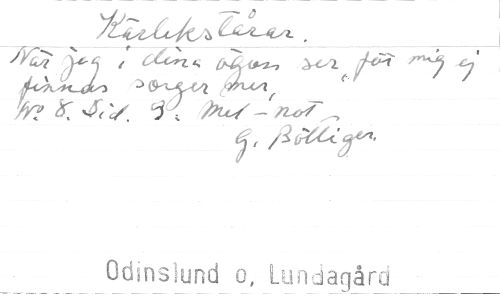 Kärlekstårar.
När jag i dina ögon ser, för mig ej
finnas sorger mer,
No 8. Sid. 9. Mel-not
G. Böttiger.
Odinslund o, Lundagård